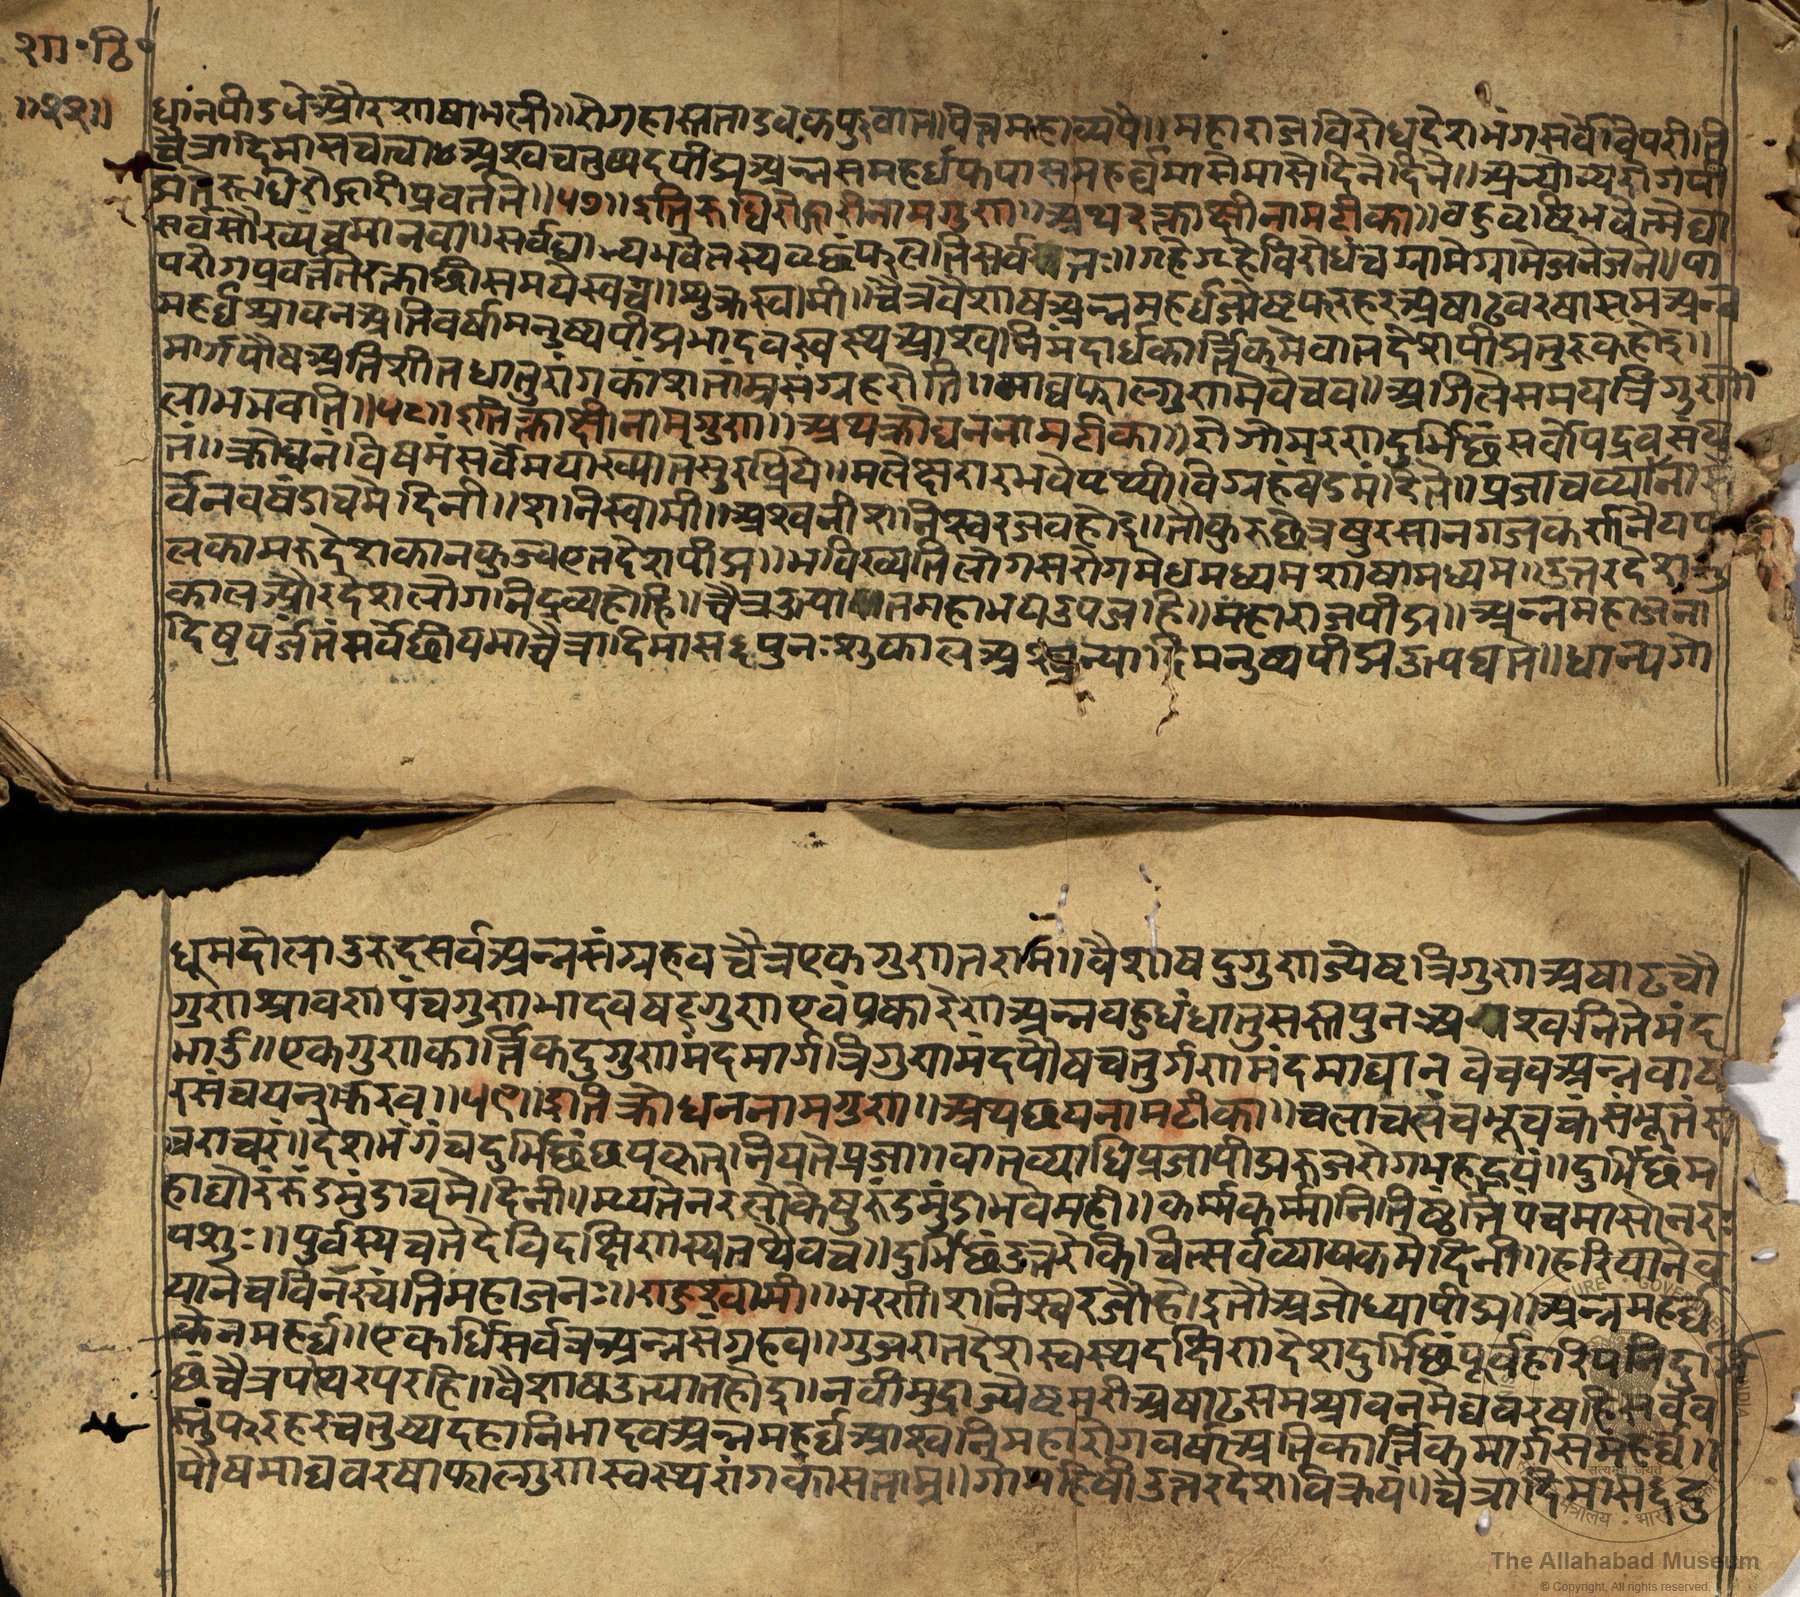 शा॰ ठि॰
॥२२॥
धानपीडधे औरशाषामली॥ रोगहास्तताडवकफुवात पित्तमहाव्यपै॥ महाराजविरोधदेशभंगसर्वेविपरीति
चैत्रादिमासचत्वा अश्वचतुष्पदपीडा अन्नसमहर्घफपासमहर्घमासेमासेदिनेदिने॥ अन्योन्यरोगपी
डातेरूधिरोद्गारीप्रवर्तते॥५७॥ इतिरूधिरोद्गारीनामगुण॥ अथरक्ताक्षीनामटीका॥ बहुवृष्टिभवेन्मेघा
सर्वसौख्यंचमानवा॥ सर्वधान्यभवेतस्य फलेतिसर्व त्तः॥ गृहेगृहेविरोधंच ग्रामेग्रामेजनेजने॥ पा
परोगप्रवर्त्ततेरक्ताछीसमयेस्वच॥ शुक्रस्वामी॥ चैत्रवैशाषअन्नमहर्घज्येष्टफरहरअषाढवरषासमअन्न
महर्घश्रावनअतिवर्षामनुष्यपीडाभादवस्वस्थआश्वनिमंदार्घकार्त्तिकमेवातदेशपीडातुरकहोइ॥
मार्गपौषअतिशीतधातुरांगकांशताम्रसंग्रहरोति॥ माघफाल्गुणमेवेचव॥ अगिलेसमयत्रिगुणो
लाभभवति॥५८॥ इतिक्ताक्षीनामगुण॥ अथक्रोधननामटीका॥ रोगोमरणदुर्भिछंसर्वोपद्रवसंयु
तं॥ क्रोधनंविषमंसर्वेमयाख्यातसुरप्रिये॥ मलेक्षणरभवेपृथ्वीविग्रहंषंडमंडिले॥ प्रजाचव्याना स
र्वेनवषंडाचमेदिनी॥ शनिस्वामी॥ अश्वनीशनिश्चरजवहोइ॥ तौकुरुछेत्रषुरसानगजकरनियप
लकामरूदेशकानकुब्जएतदेशपीडा॥ भविस्यतिलोगसरोगमेधमध्यमशाषामध्यम॥ उत्तरदेश
कालऔरदेशलोगनिद्रव्यहोहि॥ चैत्रऊत्पा तमहाभयउपजहि॥ महाराजपीडा॥ अन्नमहाजना
दिषुपर्जतंसर्वेछीयमाचैत्रादिमास६पुनःशुकालअश्वन्यादिमनुष्यपीडाऊपघत॥ धान्यगो
धूमदोलाउरूदसर्वअन्नसंग्रहवचैत्रएकगुणतरामि॥ वैशाषदुगुणज्येष्टत्रिगुणअषाढचौ
गुणश्रावणपंचगुणभादवषट्गुणएवंप्रकारेणअन्नवहुधंधातुसस्तपुनआ श्वनितेमंद
भाउ॥ एकगुणकार्त्तिकदुगुणमंदमार्गत्रिगुणमंदपौषचतुर्गणमंदमाघान वेचवअन्नवाढ
रसंचयन्क्रूरव॥५९॥ इतिक्रोधननामगुण॥ अथछयनामटीका॥ चलाचलंचभूचक्रंसंभूतंस
चराचरं॥ देशभंगंचदुर्भिछंछपत्कृतनियतेप्रजा॥ वातव्याधिप्रजापीडारूजरोगमहद्भयं॥ दुर्भिछंम
हाघौरंरूंडमुंडाचमेदिनी॥ म्रियतेनरलोकेषुरूंडमुंडाभवेमही॥ कर्म्मकर्म्मानितिष्ठंतिपंचमासोनरः
पशुः॥ पुर्वस्यचतेदेविदक्षिणस्यतथैवच॥ दुर्भिछंउत्तरोकेचित्सर्वव्यापकमेदिनी॥ हरियानेव
यानेचविनंस्यंतिमहाजनः॥ राहुस्वामी॥ भरणीशनिश्चरजौहोइतौअजोध्यापीडा॥ अन्नमहर्घ
केनमहर्घ॥ एकर्धिसर्वत्रअन्नसंग्रहव॥ गुजरातदेशस्वस्थदक्षिणदेशदुर्भिछंपूर्वहरिय
छंचैत्रपत्थरपरहि॥ वैशाषउत्पातहोइ॥ नवीमुद्राज्येष्टमरीअषाढसमश्रावनमेघवरषहिसर्वव
स्तुंफरहरचतुष्पदहानिभादवअन्नमहर्घआश्वनिमहारोगवर्षाअतिकार्त्तिकमार्गसमहर्घ॥
पौषमाघवरषाफाल्गुणस्वस्थरांगकांसताम्र॥ गोमहिषीउत्तरदेशविक्रय॥ चैत्रादिमास६दु
The Allahabad Museum
© Copyright, All rights reserved.